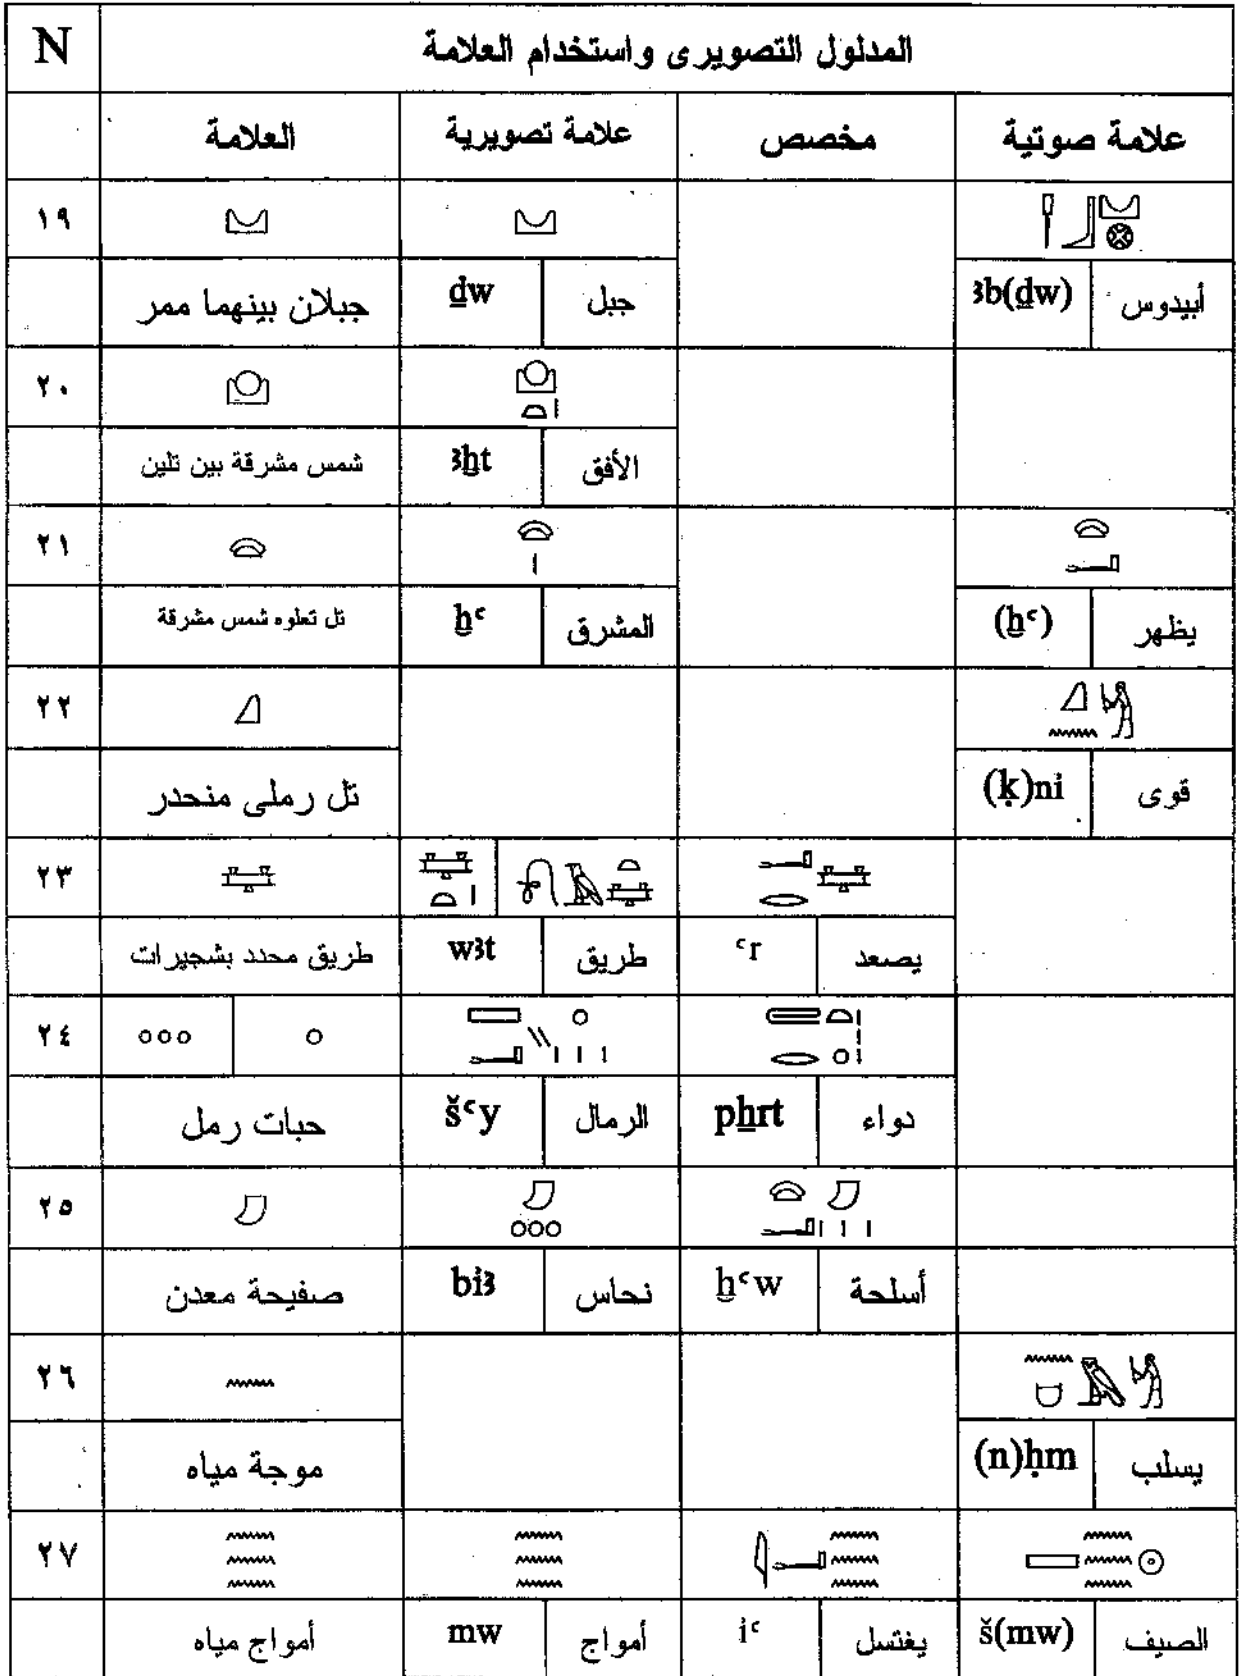 N المدلول التصويرى واستخدام العلامة
العلامة علامة تصويرية مخصص علامة صوتية
١٩
جبلان بينهما ممر ḏw جبل ꜣb(ḏw) أبيدوس
٢٠
شمس مشرقة بين تلين ꜣẖt الأفق
٢١
تل تعلوه شمس مشرقة ẖꜥ المشرق (ẖꜥ) يظهر
٢٢
تل رملى منحدر (ḳ)ni̓ قوى
٢٣
طريق محدد بشجيرات wꜣt طريق ꜥr يصعد
٢٤
حبات رمل šꜥy الرمال pẖrt دواء
٢٥
صفيحة معدن bi̓ꜣ نحاس ẖꜥw أسلحة
٢٦
موجة مياه (n)ḥm يسلب
٢٧
أمواج مياه mw أمواج i̓ꜥ يغتسل š(mw) الصيف